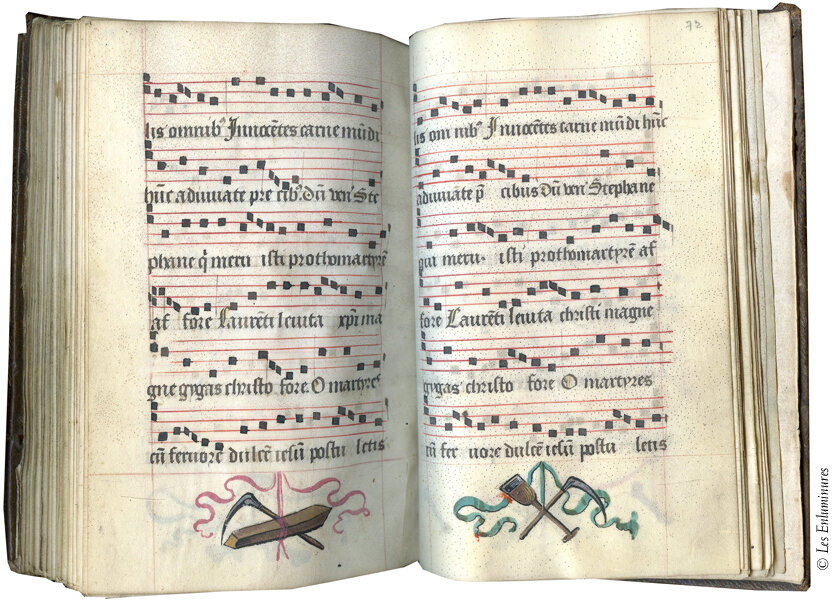 lis omnib⁹ Innocẽtes carne mũdi
hũc adiuuate pre cib⁹. Dũ ven' Ste
phane q̃ meru isti prothomartyrẽ
af fore Laurẽti leuita xp̃i ma
gne gygas christo fore. O martyres
cũ feruore dulcẽ iesũ postu letis
72
lis om nib⁹ Innocẽtes carne mũdi hũc
adiuuate p̃ cibus Dũ ven' Stephane
qui meru isti prothomartyrẽ af
fore Laurẽti leuita christi magne
gygas christo fore O martyres
cũ fer uore dulcẽ iesũ postu letis
© Les Enluminures